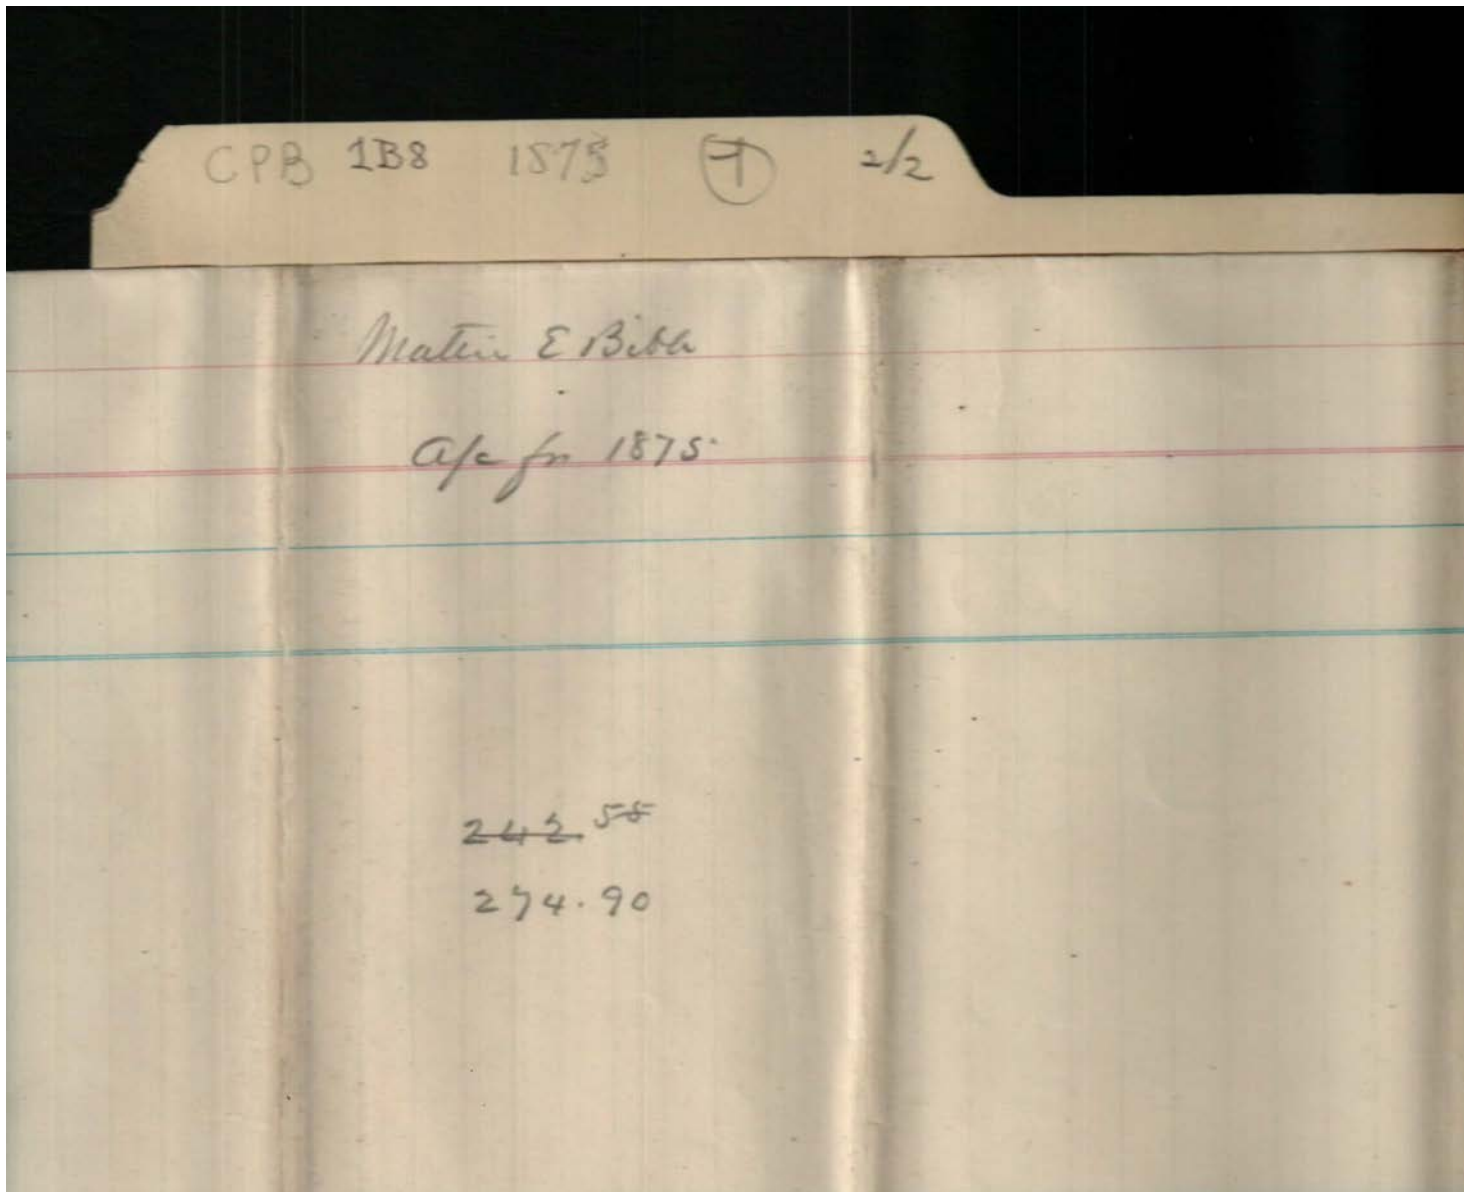 CPB 1B8 1875 T 2/2
E Bibb
A/c for 1875
242.58
274.90